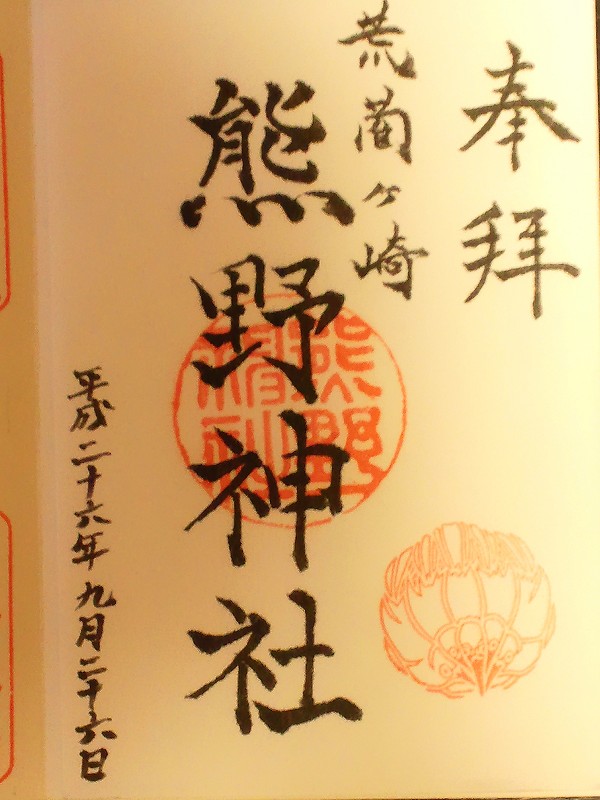 奉拝
荒藺ヶ崎
熊野神社
平成二十六年九月二十六日